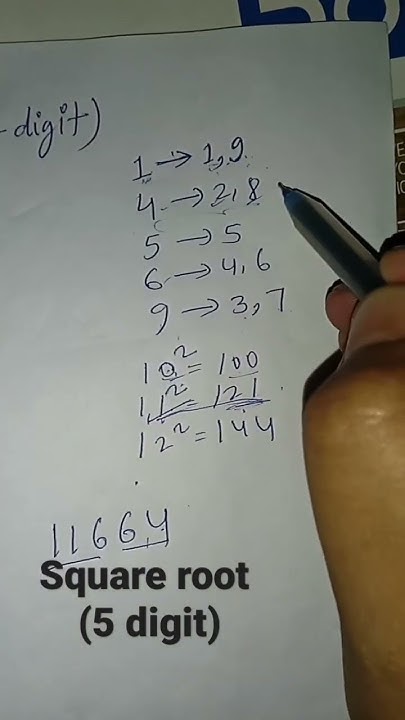 -digit)
1 → 1,9
4 → 2,8
5 → 5
6 → 4,6
9 → 3,7
10² = 100
11² = 121
12² = 144
11664
Square root
(5 digit)